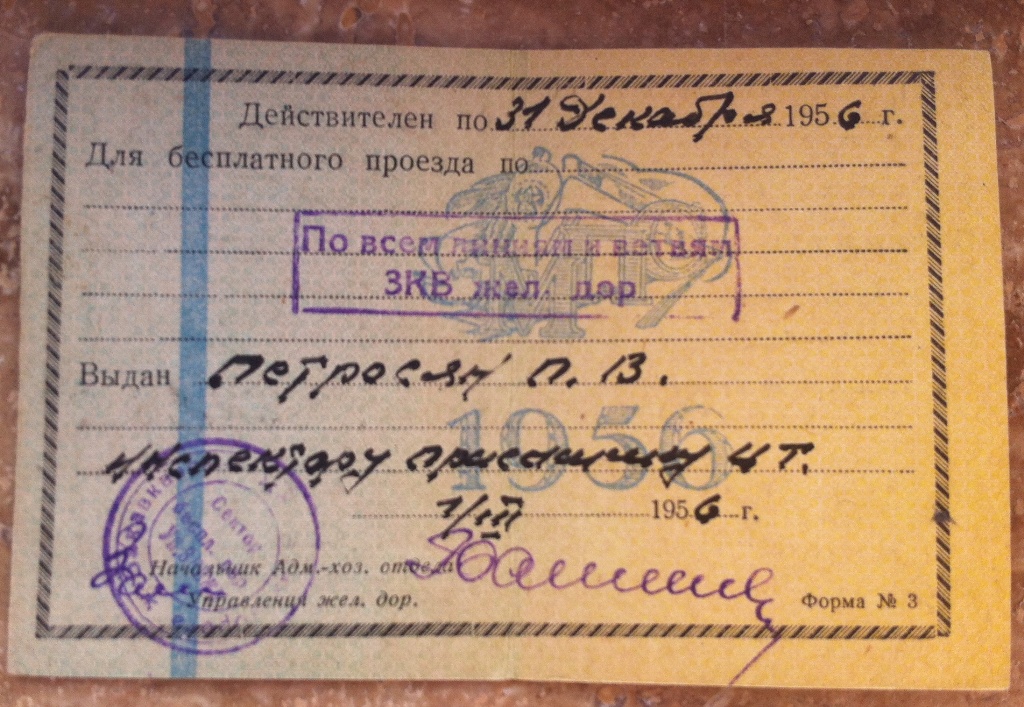 Действителен по 31 Декабря 1956 г.
Для бесплатного проезда по
По всем линиям и ветвям
ЗКВ жел. дор
Выдан Петросян П. В.
1956
Инспектору ЦТ.
1/III 1956 г.
Сектор
Начальник Адм.-хоз. отдела
Управления жел. дор.
Форма № 3